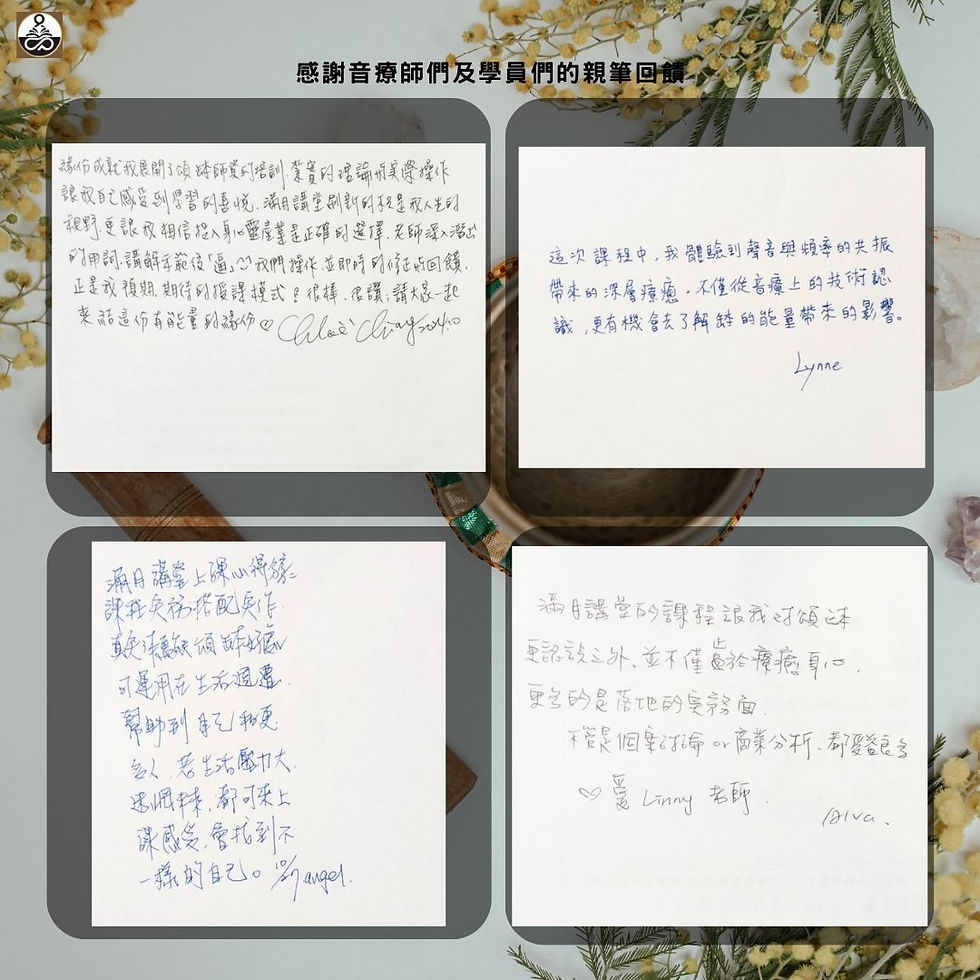 感謝音療師們及學員們的親筆回饋
緣份成就我展開了頌缽師資的培訓.紮實的理論與實際操作
讓我自己感受到學習的喜悅.滿月講堂刷新的不只是我人生的
視野.更讓我相信投入身心靈產業是正確的選擇.老師深入淺出
的用詞.講解示範後「逼」我們操作.並即時的修正與回饋.
正是我預期.期待的授課模式!很棒.很讚.請大家一起
來結這份有能量的緣份♡ Chloe Chiang
這次課程中,我體驗到聲音與頻率的共振
帶來的深層療癒。不僅從音療上的技術認
識,更有機會去了解缽的能量帶來的影響。
Lynne
滿月講堂上課心得
課程實務搭配實作.
真實體驗頌缽好處
可運用在生活週遭.
幫助到自己和更
多人.若生活壓力大.
都可來上
課感受.會找到不
一樣的自己。 angel.
滿月講堂的課程讓我對頌缽
更認識之外.並不僅止於療癒身心.
更多的是落地的實務面.
不管是個案討論 or 商業分析.都受益良多
♡愛 Linny 老師.
Alva.